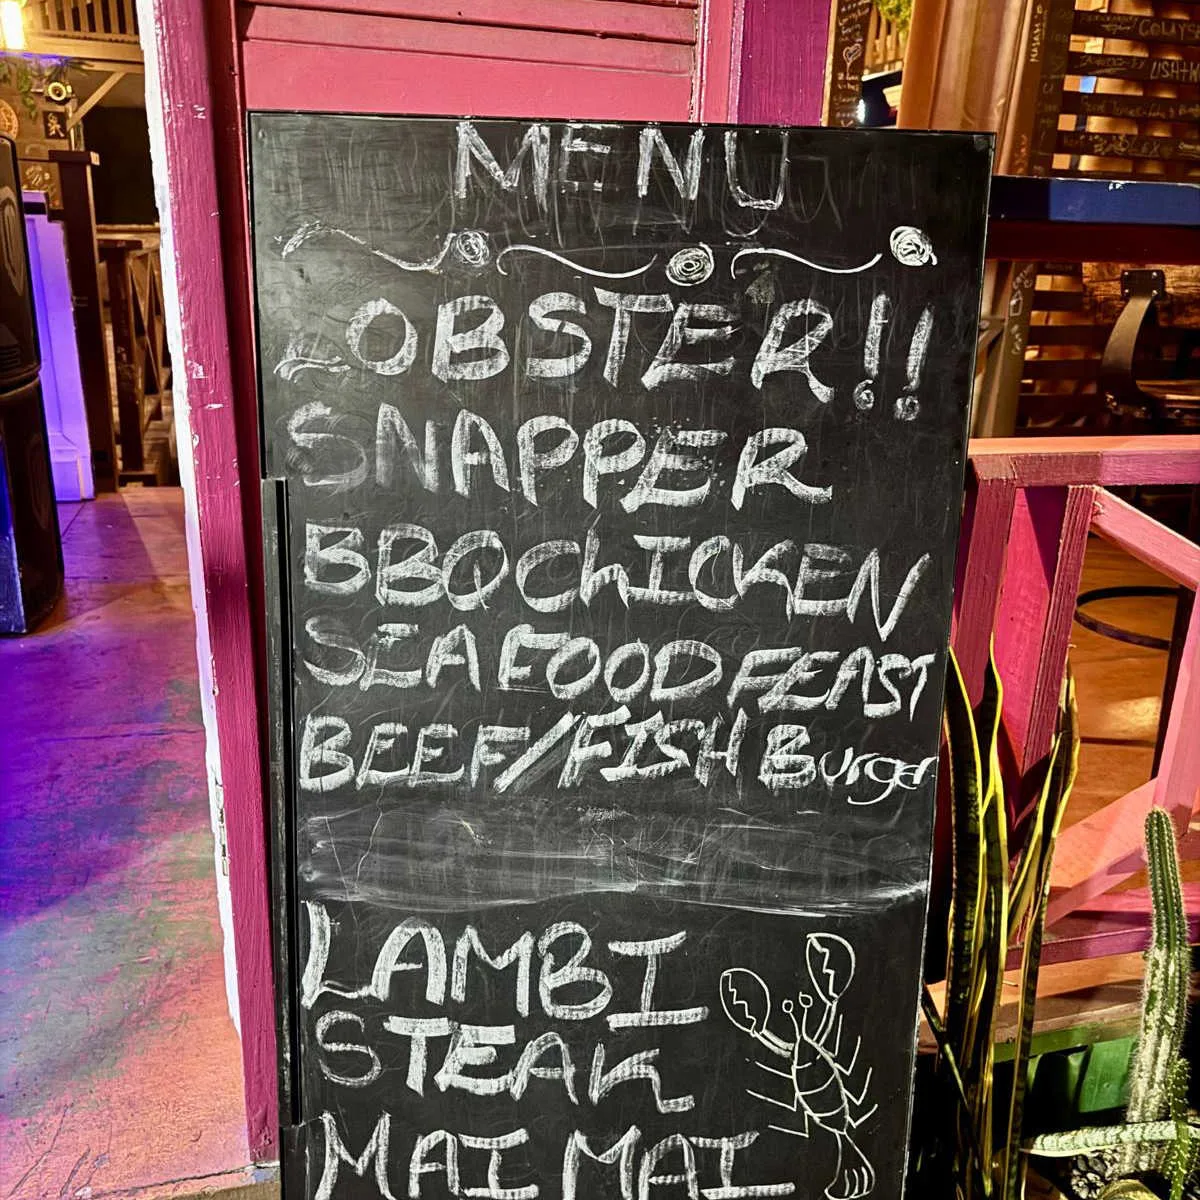 MENU
LOBSTER!!
SNAPPER
BBQ ChICKEN
SEAFOOD FEAST
BEEF/FISH Burger
LAMBI
STEAK
MAI MAI